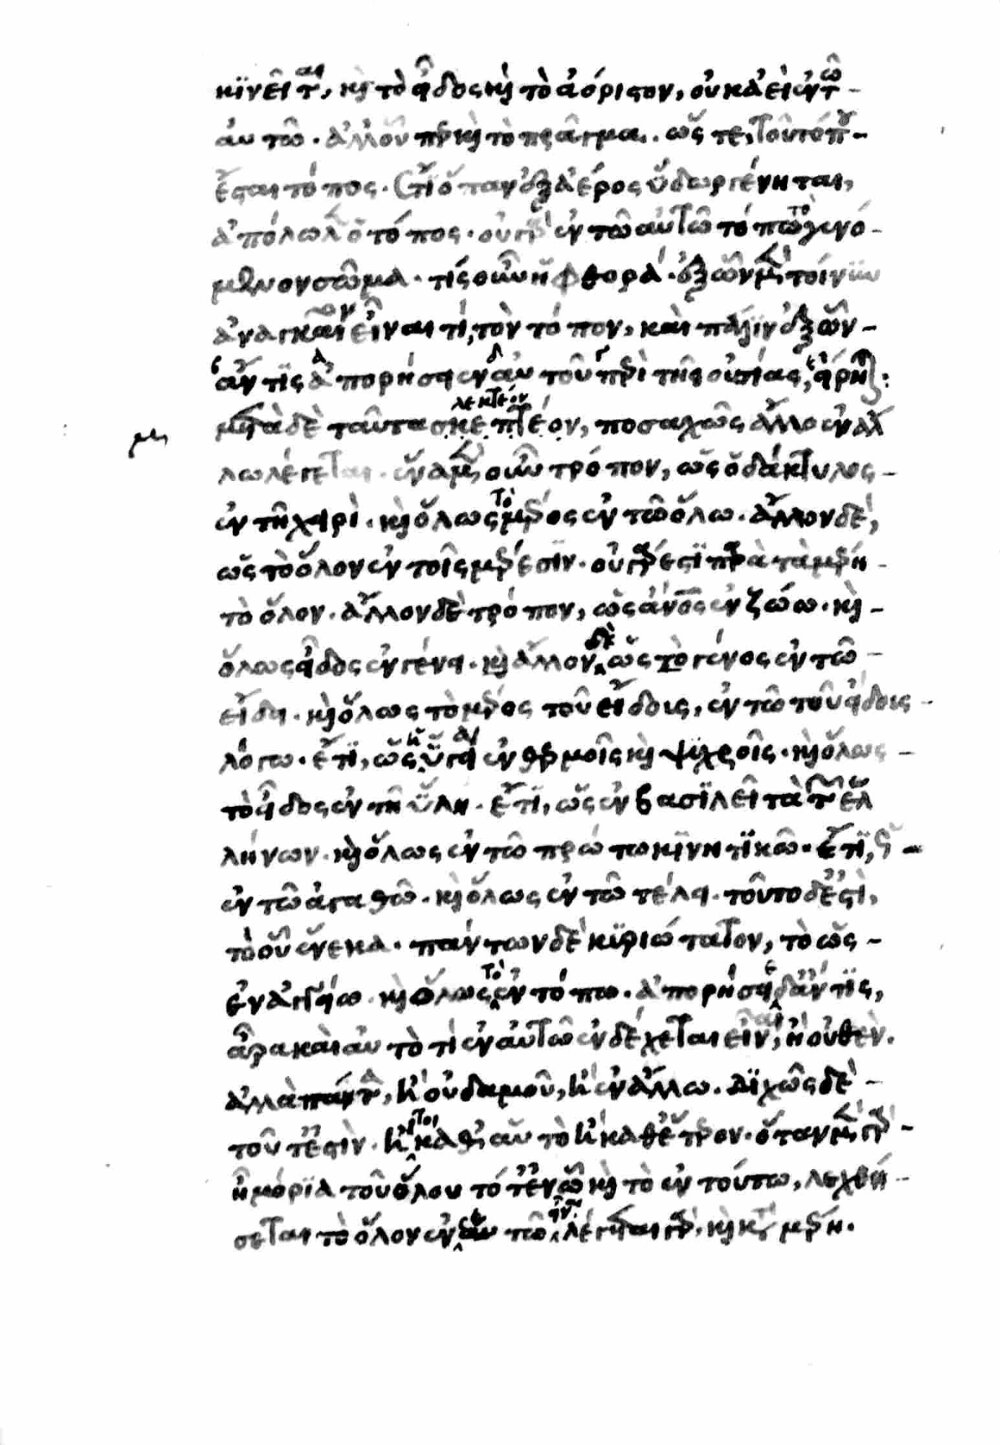 κινεῖται, καὶ τὸ εἶδος καὶ τὸ ἀόριστον, οὐκ ἀεὶ ἐν τῷ
αὐτῶ· ἀλλ' οὗπερ καὶ τὸ πρᾶγμα. ὥστε, τοῦ τόπου
ἔσται τόπος. ἔτι ὅταν ἐξ ἀέρος ὕδωρ γένηται,
ἀπόλωλεν ὁ τόπος· οὐ γὰρ ἐν τῶ αὐτῶ τόπω τὸ γενό-
μενον σῶμα· τίς οὖν ἡ φθορά· ἐξ ὧν μὲν τοίνυν
ἀναγκαῖον εἶναί τι, τὸν τόπον, καὶ πάλιν ἐξ ὧν
ἄν τις ἀπορήσειεν αὐτοῦ περὶ τῆς οὐσίας, εἴρηται:
μετὰ δὲ ταῦτα σκεπτέον, λεκτέον ποσαχῶς ἄλλο ἐν ἄλ
λω λέγεται. ἕνα μὲν οὖν τρόπον, ὡς ὁ δάκτυλος
ἐν τῆ χειρὶ· καὶ ὅλως τὸ μέρος ἐν τῶ ὅλω. ἄλλον δὲ,
ὡς τὸ ὅλον ἐν τοῖς μέρεσιν· οὐ γάρ ἐστι παρὰ τὰ μέρη
τὸ ὅλον. ἄλλον δὲ τρόπον, ὡς ἄνθρωπος ἐν ζώω· καὶ
ὅλως εἶδος ἐν γένει. καὶ ἄλλον δὲ ὡς τὸ γένος ἐν τῶ
εἴδει. καὶ ὅλως τὸ μέρος τοῦ εἴδους, ἐν τῶ τοῦ εἴδους
λόγω. ἔτι, ὡς ἡ ὑγίεια ἐν θερμοῖς καὶ ψυχροῖς· καὶ ὅλως
τὸ εἶδος ἐν τῆ ὕλη. ἔτι, ὡς ἐν βασιλεῖ τὰ τῶν ἑλ
λήνων. καὶ ὅλως ἐν τῶ πρώτω κινητικῶ. ἔτι, ὡς
ἐν τῶ ἀγαθῶ. καὶ ὅλως ἐν τῶ τέλει. τοῦτο δέ ἐστὶ,
τὸ οὗ ἕνεκα. πάντων δὲ κυριώτατον, τὸ ὡς
ἐν ἀγγείω. καὶ ὅλως τὸ ἐν τόπω. ἀπορήσειε δ' ἄν τις,
ἆρα καὶ αὐτό τι ἐν αὑτῶ ἐνδέχεται εἶναι, ἢ οὐθὲν.
ἀλλὰ πᾶν, ἢ οὐδαμοῦ, ἢ ἐν ἄλλω. διχῶς δὲ
τοῦτ' ἐστὶν. ἤτοι καθ' αὑτὸ ἢ καθ' ἕτερον. ὅταν μὲν γὰρ
ἦ μόρια τοῦ ὅλου τό τε ἐν ὧ καὶ τὸ ἐν τούτω, λεχθή-
σεται τὸ ὅλον ἐν αὑτῶ εἶναι. λέγεται γὰρ, καὶ κατὰ μέρη.